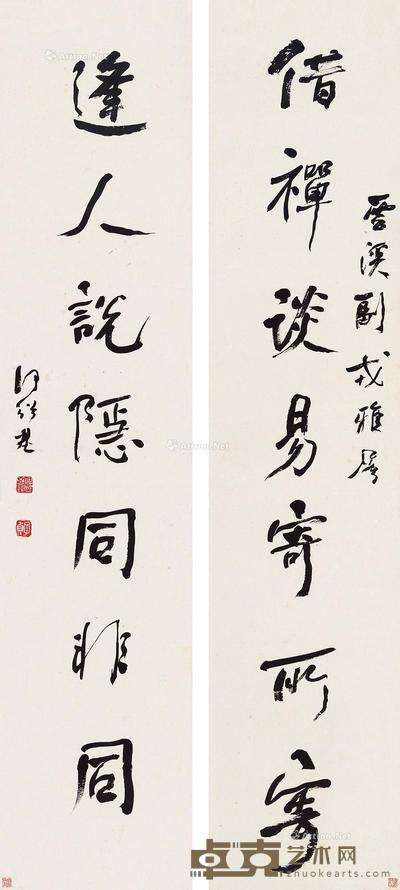 溪副戎雅屬
借禪談易寄所寄
逢人說隱同非同
何紹基
卓克艺术网
zhuokearts.com